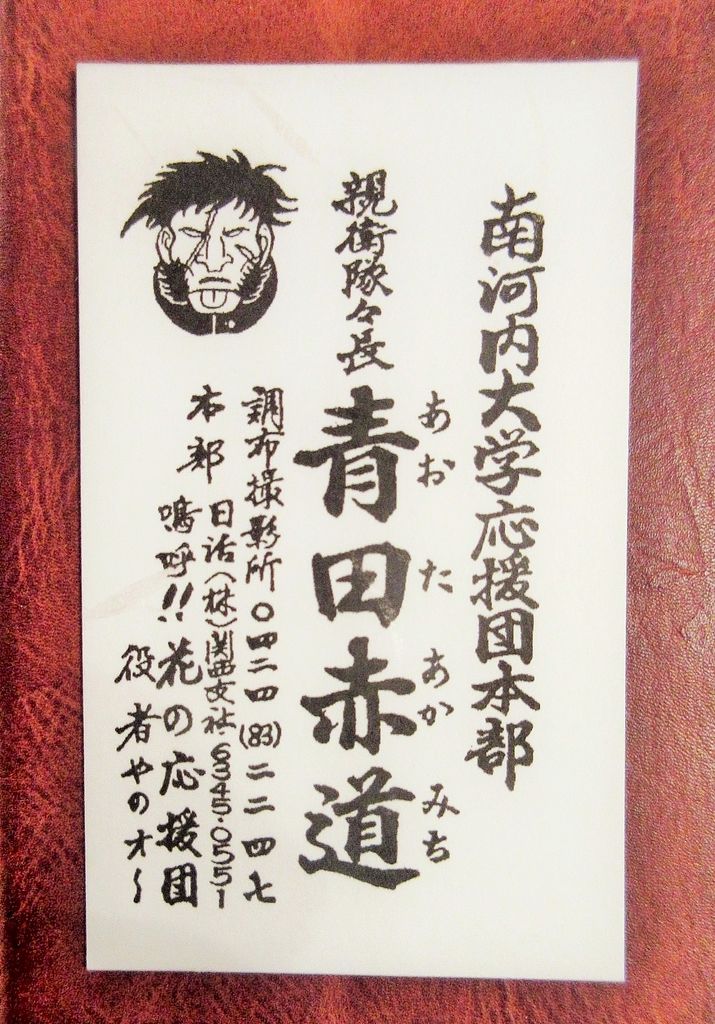 南河内大学応援団本部
親衛隊々長
青田赤道
あおたあかみち
調布撮影所〇四二四(83)二二四七
本部
日活(株)関西支社・6345・0551
嗚呼!!花の応援団
役者やのオ〜